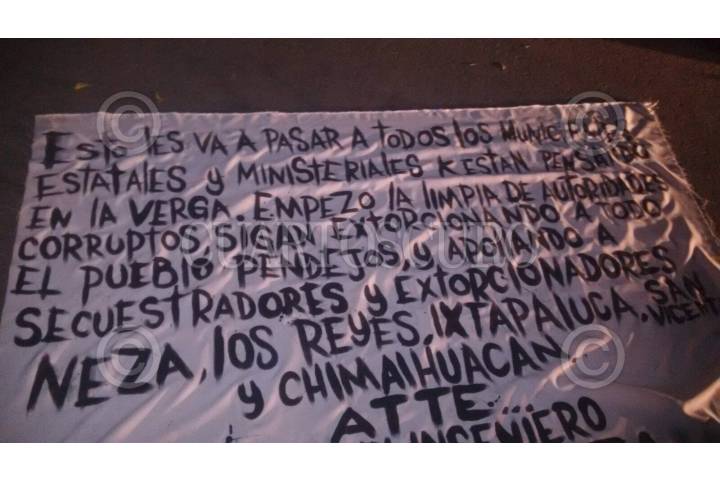 Esto les va a pasar a todos los municipales
estatales y ministeriales k estan pensando
en la verga. Empezo la limpia de autoridades
corruptos, sigan extorsionando a todo
el pueblo pendejos, y apollando a
secuestradores y extorcionadores
Neza, los Reyes, Ixtapaluca, San
Vicente
y Chimalhuacan.
Atte...
Ingeniero
CUARTOSCURO